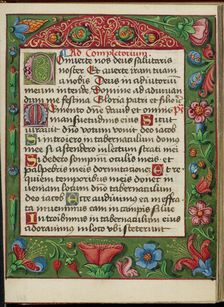 Ad Completorium
Converte nos deus salutaris
noster Et averte iram tuam
a nobis Deus in adiutorium
meum intende Domine ad adiuvan
dum me festina Gloria patri et filio
Memento dne david et omnis
mansuetudinis eius Sicut
iuravit dno votum vovit deo iacob
Si introiero in tabernaculum domus
mee si ascendero in lectum strati mei
Si dedero somnum oculis meis et
palpebris meis dormitationem Et re
quiem temporibus meis donec in
veniam locum dno tabernaculum
deo iacob Ecce audivimus eam in eff
rata invenimus eam in campis silve
Introibimus in tabernaculum eius
adorabimus in loco ubi steterunt